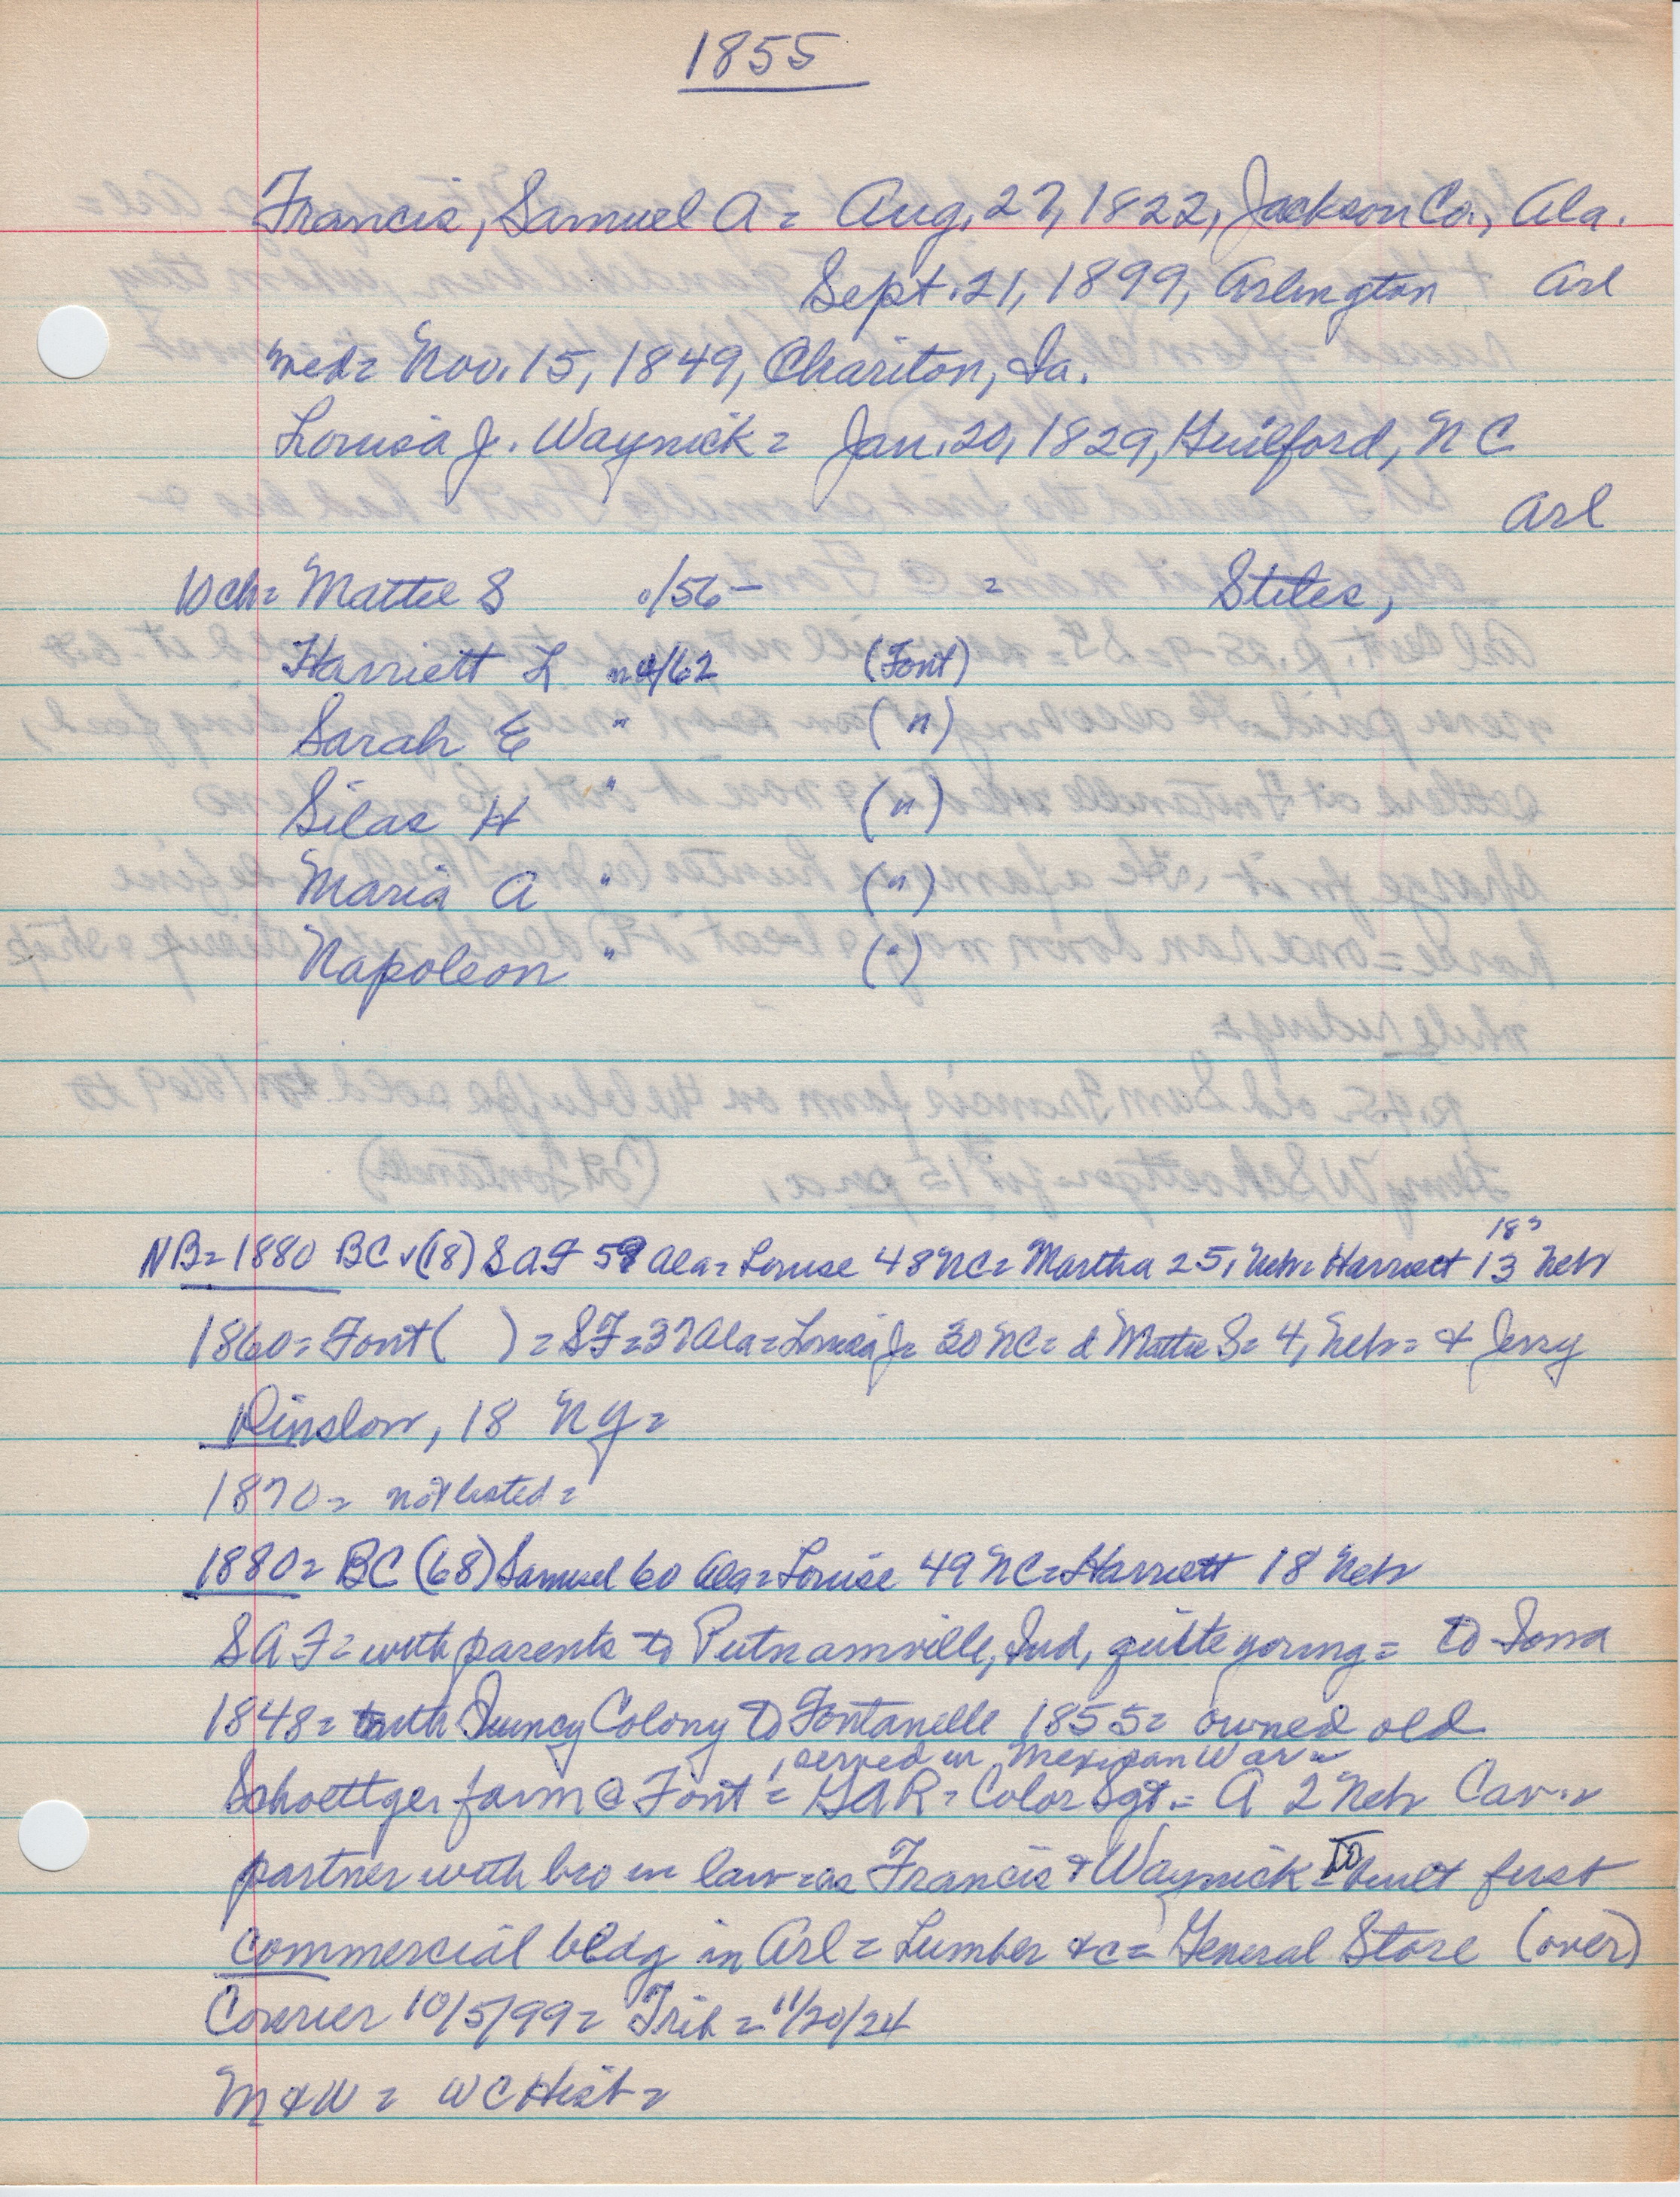 1855
Francis, Samuel A = Aug. 27, 1822, Jackson Co., Ala.
Sept. 21, 1899, Arlington Arl
med = Nov. 15, 1849, Chariton, Ia.
Louisa J. Waynick = Jan. 20, 1829, Guilford, N C
Arl
10 ch = Mattie S /56 – = Stiles,
Harriett L /62 (Font)
Sarah E " (")
Silas H " (")
Maria A " (")
Napoleon " (")
18?
NB = 1880 BC (18) S A F 59 Ala = Louise 48 NC = Martha 25, Neb = Harriett 13 Neb
1860 = Font ( ) = S F = 37 Ala = Louisa J = 30 NC = d Mattie S = 4, Neb = & Jerry
Winslow, 18 N Y =
1870 = not listed =
1880 = BC (68) Samuel 60 Ala = Louise 49 NC = Harriett 18 Neb
S A F = with parents to Putnamville, Ind, quite young = to Iowa
1848 = with Quincy Colony to Fontanelle 1855 = owned old
, served in Mexican War =
Schoettger farm @ Font = G A R = Color Sgt. = A 2 Neb Cav. =
partner with bro in law = as Francis & Waynick = built first
commercial bldg in Arl = Lumber &c = General Store (over)
Courier 10/5/99 = Trib = 11/20/24
M & W = W C Hist =